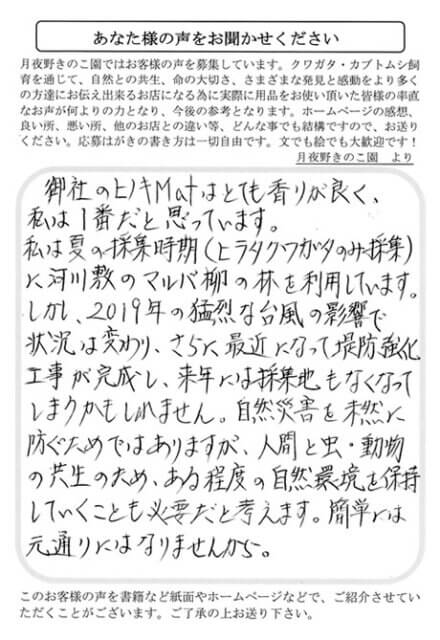 あなた様の声をお聞かせください
月夜野きのこ園ではお客様の声を募集しています。クワガタ・カブトムシ飼
育を通じて、自然との共生、命の大切さ、さまざまな発見と感動をより多く
の方達にお伝え出来るお店になる為に実際に用品をお使い頂いた皆様の率直
なお声が何よりの力となり、今後の参考となります。ホームページの感想、
良い所、悪い所、他のお店との違い等、どんな事でも結構ですので、お送り
ください。応募はがきの書き方は一切自由です。文でも絵でも大歓迎です！
月夜野きのこ園　より
御社のヒノキMatはとても香りが良く、
私は1番だと思っています。
私は夏の採集時期(ヒラタクワガタのみ採集)
に河川敷のマルバ柳の林を利用しています。
しかし、2019年の猛烈な台風の影響で
状況は変わり、さらに最近になって堤防強化
工事が完成し、来年には採集地もなくなって
しまうかもしれません。自然災害を未然に
防ぐためではありますが、人間と虫・動物
の共生のため、ある程度の自然環境を保持
していくことも必要だと考えます。簡単には
元通りにはなりませんから。
このお客様の声を書籍など紙面やホームページなどで、ご紹介させてい
ただくことがございます。ご了承の上お送り下さい。